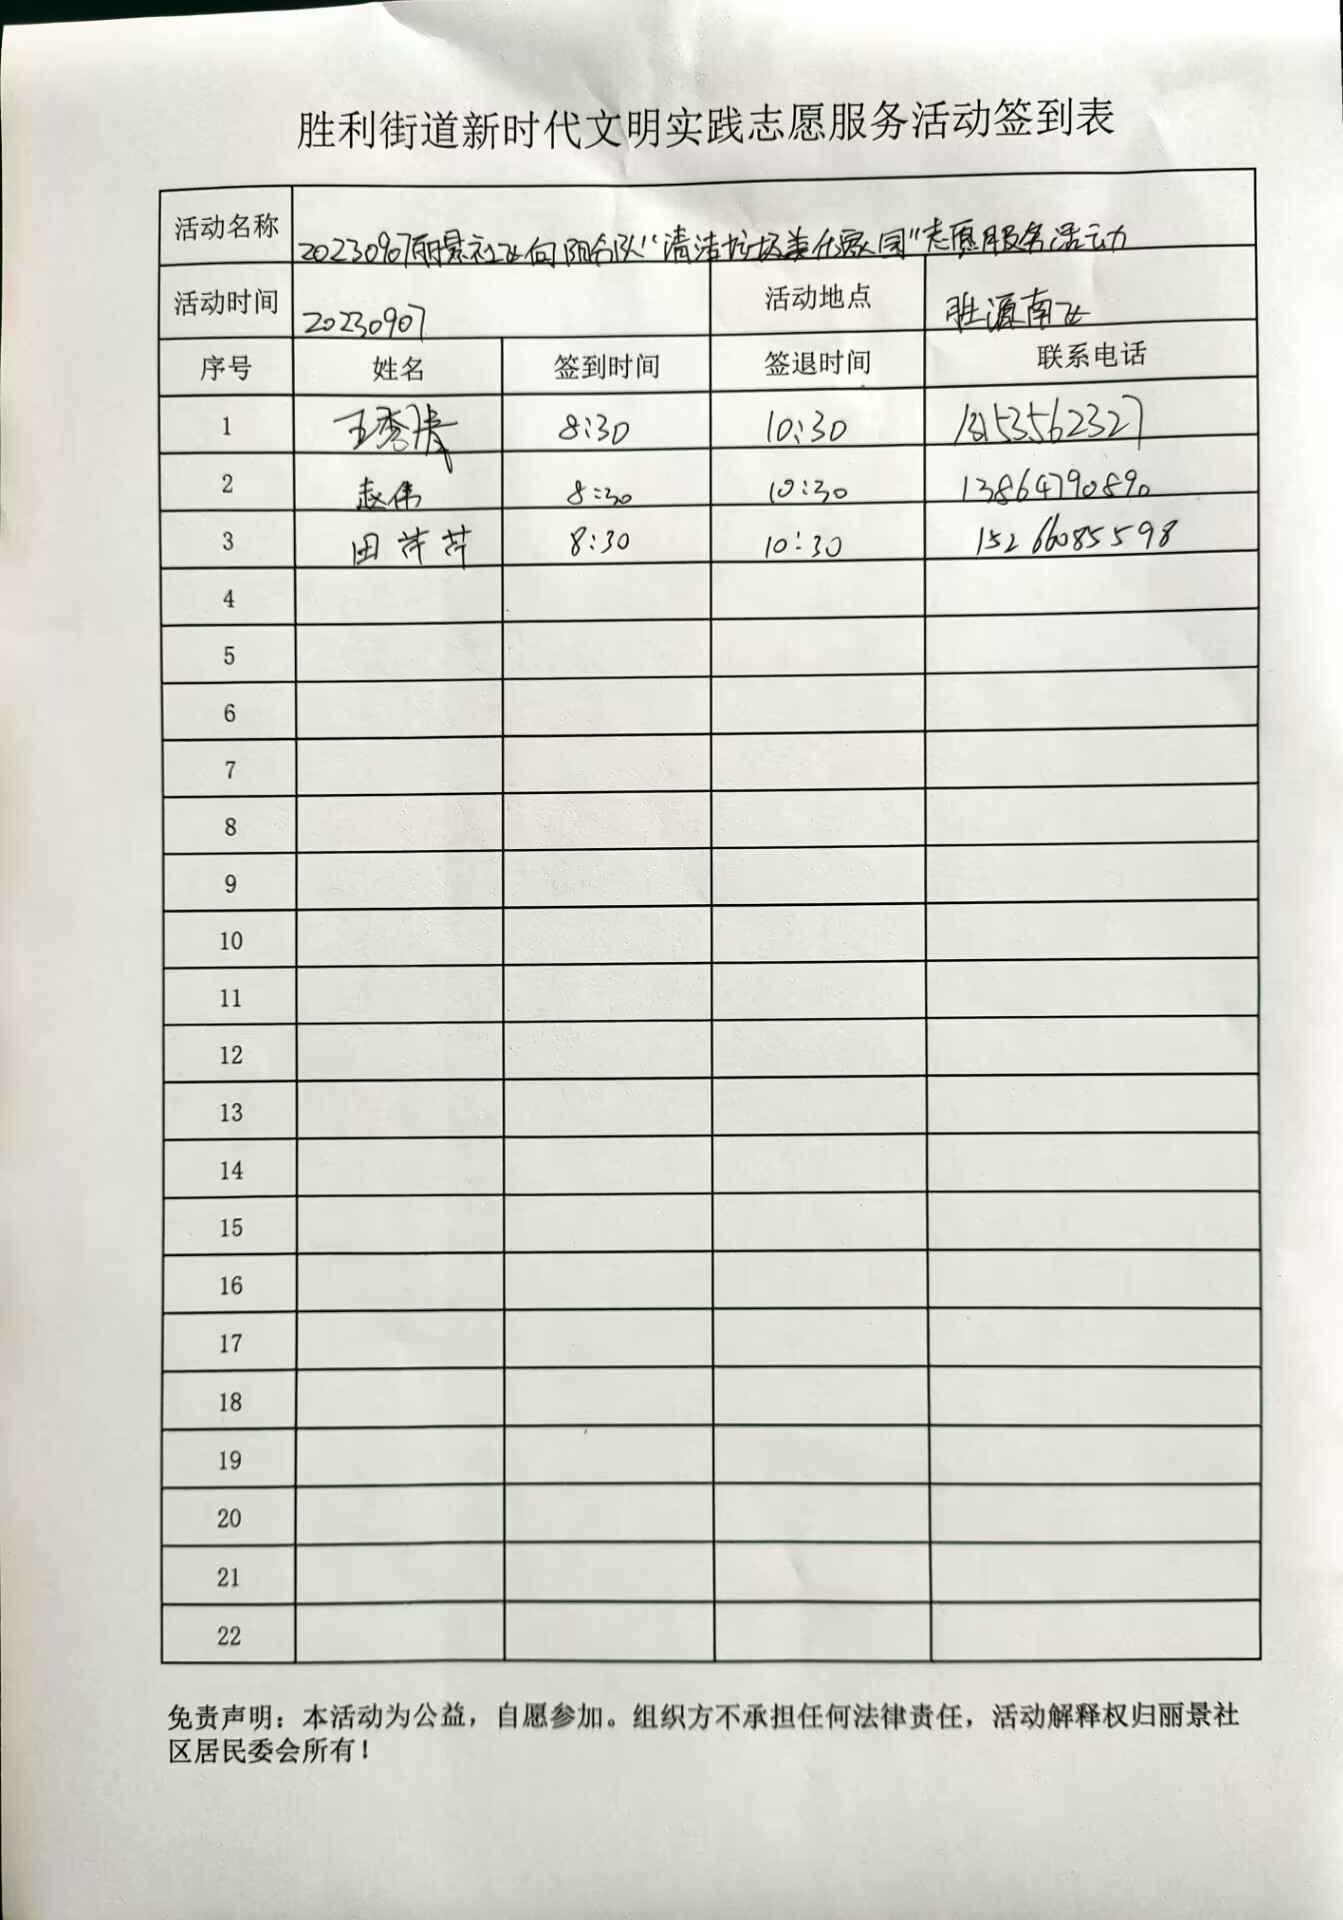 胜利街道新时代文明实践志愿服务活动签到表
活动名称 20230907丽景社区向阳分队“清洁垃圾美化家园”志愿服务活动
活动时间 20230907 活动地点 胜源南区
序号 姓名 签到时间 签退时间 联系电话
1 王秀 8:30 10:30
2 赵伟 8:30 10:30 13864790890
3 田芹芹 8:30 10:30 15266085598
4
5
6
7
8
9
10
11
12
13
14
15
16
17
18
19
20
21
22
免责声明：本活动为公益，自愿参加。组织方不承担任何法律责任，活动解释权归丽景社
区居民委会所有！